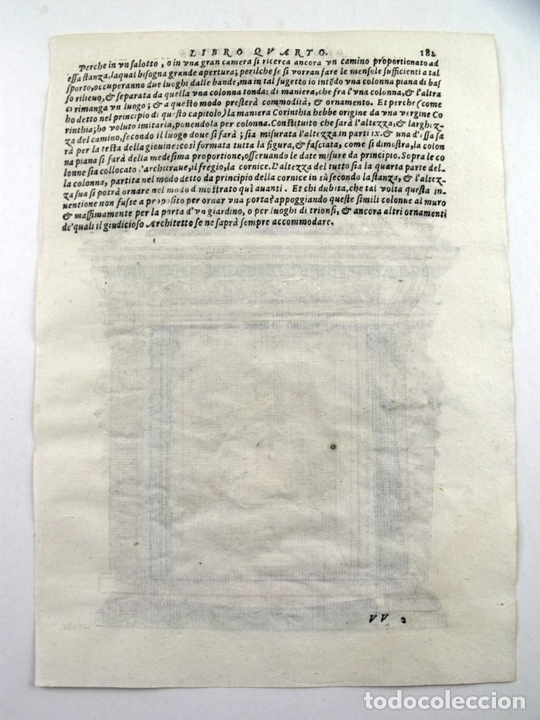 LIBRO QVARTO. 182
Perche in vn salotto, o in vna gran camera si ricerca ancora vn camino proportionato ad
essa stanza, laqual bisogna grande apertura; perilche se si vorran fare le mensole sufficienti a tal
sporto, occuperanno due luoghi dalle bande, ma in tal sugetto io intēdo vna colonna piana di bas
so rilieuo, & separata da quella vna colonna tonda: di maniera, che fra l'vna colonna, & l'altra
ci rimanga vn luogo; & a questo modo prestera commodità, & ornamento. Et perche (come
ho detto nel principio di questo capitolo) la maniera Corinthia hebbe origine da vna vergine Co
rinthia; ho voluto imitarla, ponendola per colonna. Constituito che sarà l'altezza, & larghez-
za del camino, secondo il luogo doue si farà; sia misurata l'altezza in parti ix. & vna d'esse sa
rà per la testa della giouine: così formata tutta la figura, & fasciata, come si dimostra, la colon
na piana si farà della medesima proportione, osseruando le date misure da principio. Sopra le co
lonne sia collocato l'architraue, il fregio, la cornice. L'altezza del tutto sia la quarta parte del-
la colonna, partita nel modo detto da principio della cornice in sù secondo la stanza, & l'altez-
za sua si potrà ornare nel modo dimostrato quì auanti. Et chi dubita, che tal volta questa in
uentione non fusse a proposito per ornar vna porta? appoggiando queste simili colonne al muro
& massimamente per la porta d'vn giardino, o per luoghi di trionfi, & ancora altri ornamenti
de'quali il giudicioso Architetto se ne saprà sempre accommodare.
VV 2
todocoleccion
todocoleccion.net